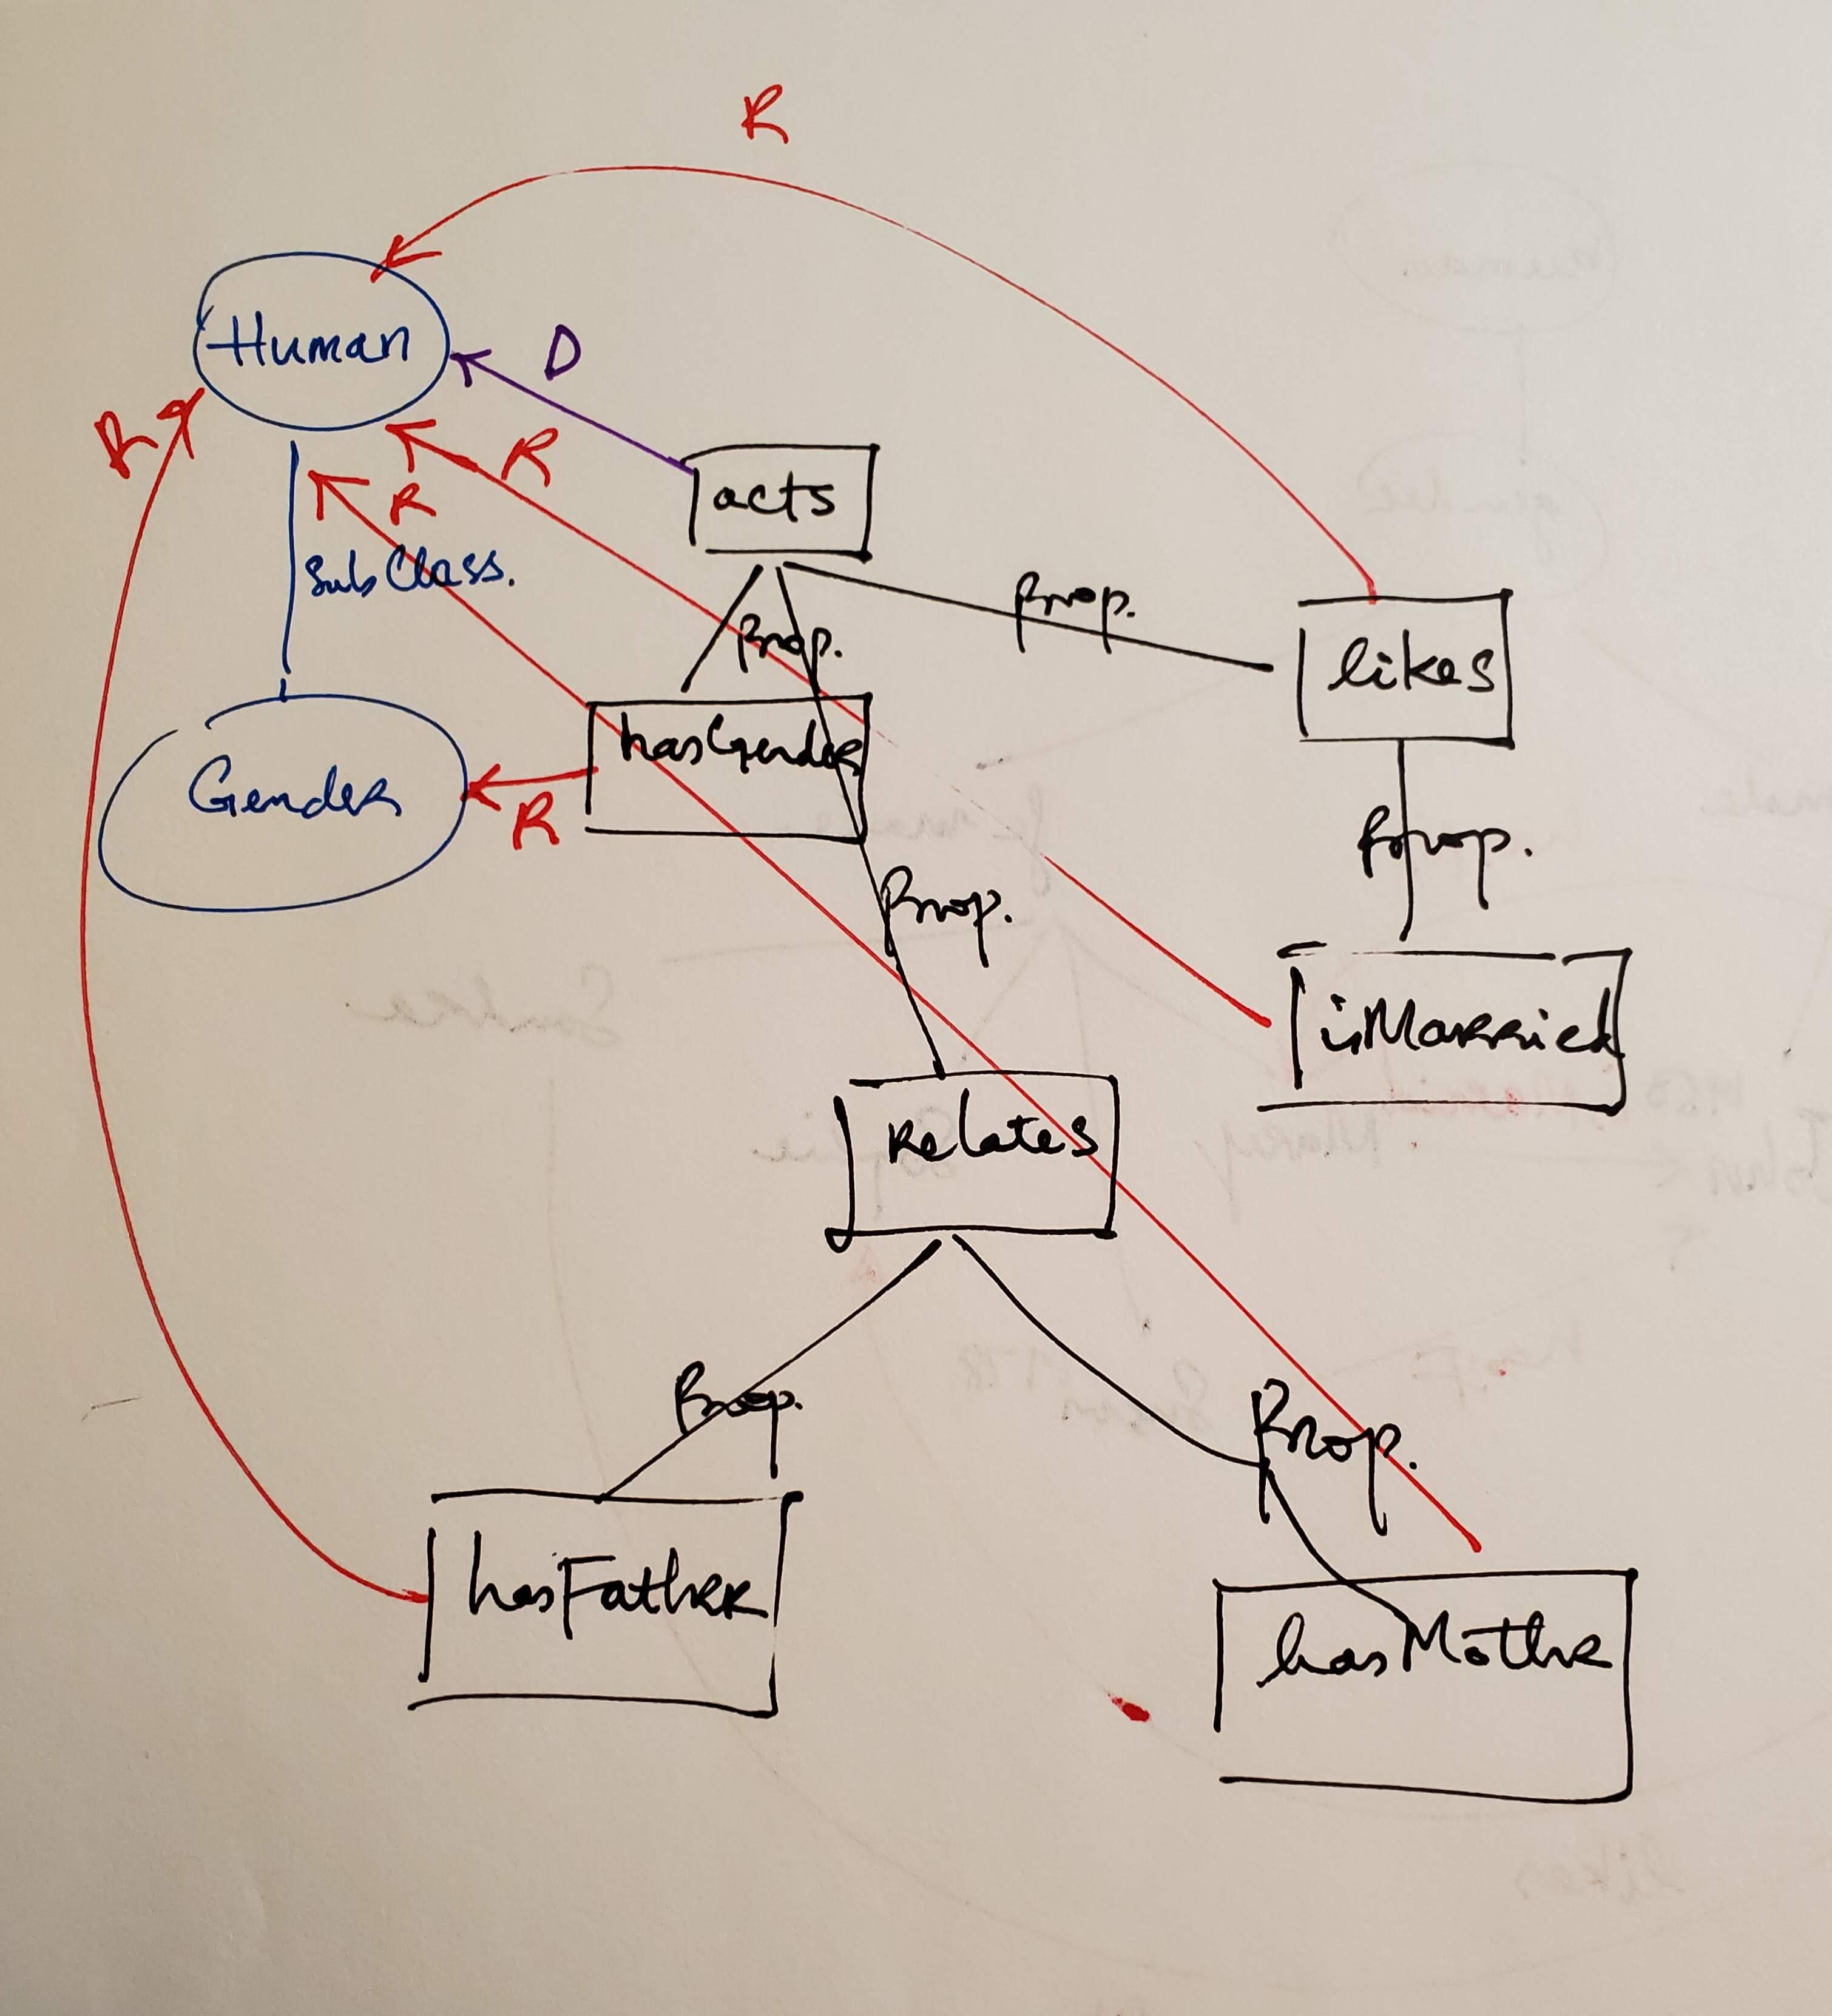 R
Human
D
R
R
acts
R
SubClass.
Prop.
Prop.
likes
hasGender
Gender
R
Prop.
Prop.
isMarried
Relates
Prop.
Prop.
hasFather
hasMothe
likes